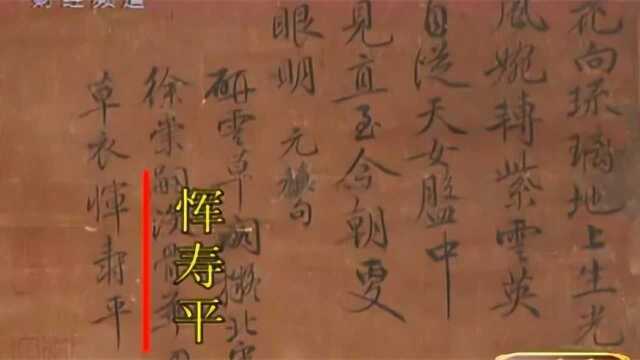 财经频道
花向琉璃地上生光
風婉轉紫雲英
自從天女盤中
見直至今朝更
眼明 元 句
研雲草閣擬北宋
徐崇嗣沒骨
草衣惲壽平
恽寿平